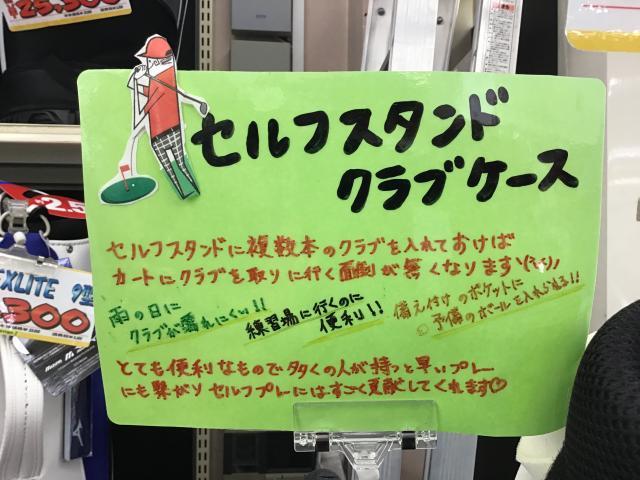 25,300
セルフスタンド
クラブケース
セルフスタンドに複数本のクラブを入れておけば
カートにクラブを取りに行く面倒が無くなります\(^o^)/
雨の日に
クラブが濡れにくい!!
練習場に行くのに
便利!!
備え付けのポケットに
予備のボールを入れられる!!
とても便利なもので多くの人が持つと早いプレー
にも繋がりセルフプレーにはすごく貢献してくれます♡
EXLITE 9型
,300
2.5